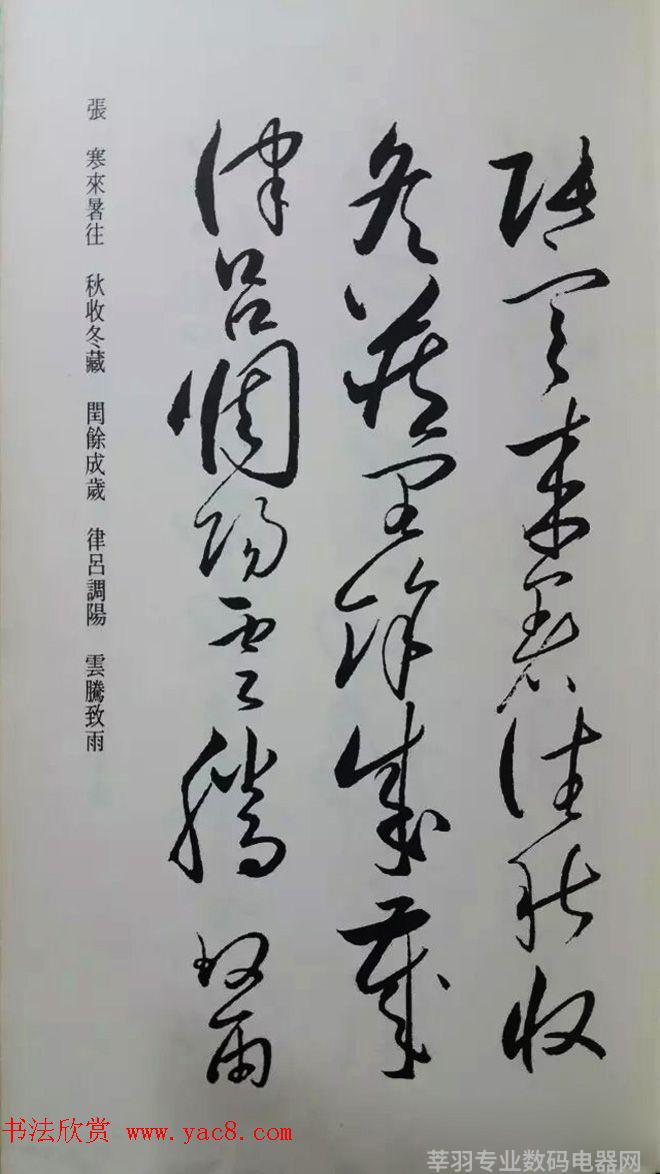 張寒來暑往秋收
冬藏閏餘成歲
律呂調陽雲騰致雨
張 寒來暑往 秋收冬藏 閏餘成歲 律呂調陽 雲騰致雨
书法欣赏 www.yac8.com
莘羽专业数码电器网